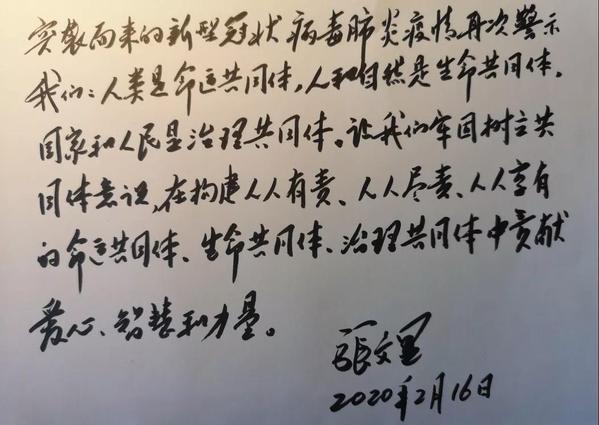 突袭而来的新型冠状病毒肺炎疫情再次警示
我们：人类是命运共同体，人和自然是生命共同体，
国家和人民是治理共同体。让我们牢固树立共
同体意识，在构建人人有责、人人尽责、人人享有
的命运共同体、生命共同体、治理共同体中贡献
爱心、智慧和力量。
張文
2020年2月16日